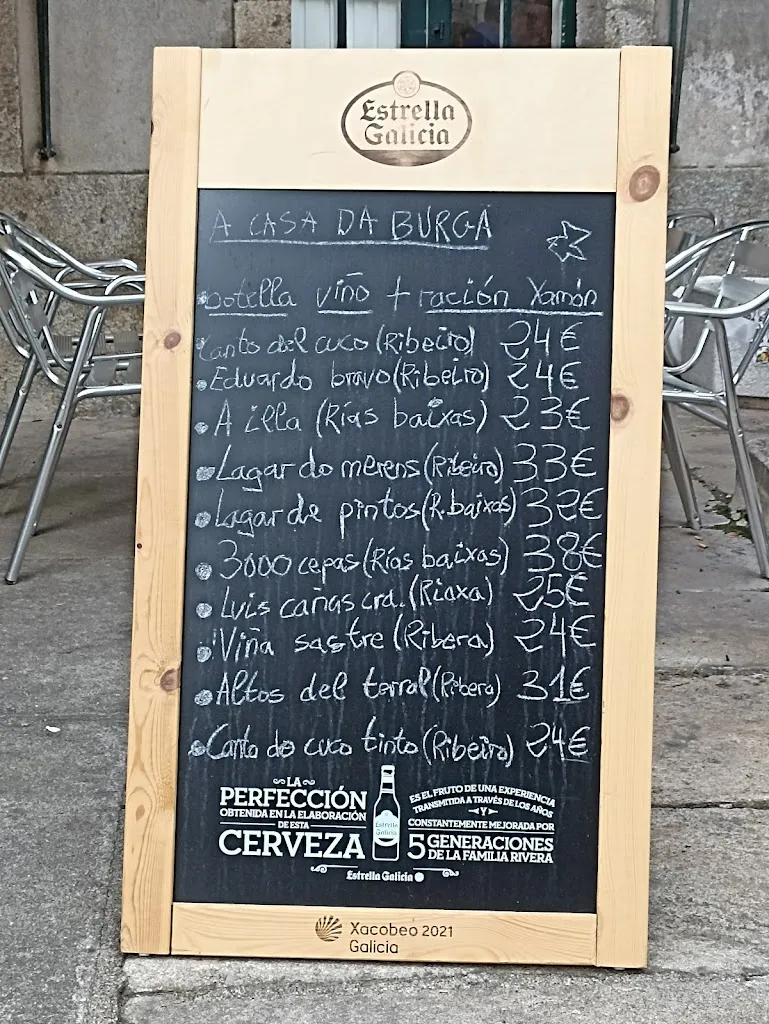 Estrella
Galicia
A CASA DA BURGA
botella viño + ración Xamón
Canto del cuco (Ribeiro) 24€
Eduardo bravo (Ribeiro) 24€
A illa (Rías baixas) 23€
Lagar do merens (Ribeiro) 33€
Lagar de pintos (R. baixas) 32€
3000 cepas (Rías baixas) 38€
Luis cañas crd. (Rioxa) 25€
Viña sastre (Ribera) 24€
Altos del terral (Ribera) 31€
Canto do cuco tinto (Ribeiro) 24€
LA
PERFECCIÓN
OBTENIDA EN LA ELABORACIÓN
DE ESTA
CERVEZA
Estrella
Galicia
ES EL FRUTO DE UNA EXPERIENCIA
TRANSMITIDA A TRAVÉS DE LOS AÑOS
Y
CONSTANTEMENTE MEJORADA POR
5 GENERACIONES
DE LA FAMILIA RIVERA
Estrella Galicia
Xacobeo 2021
Galicia